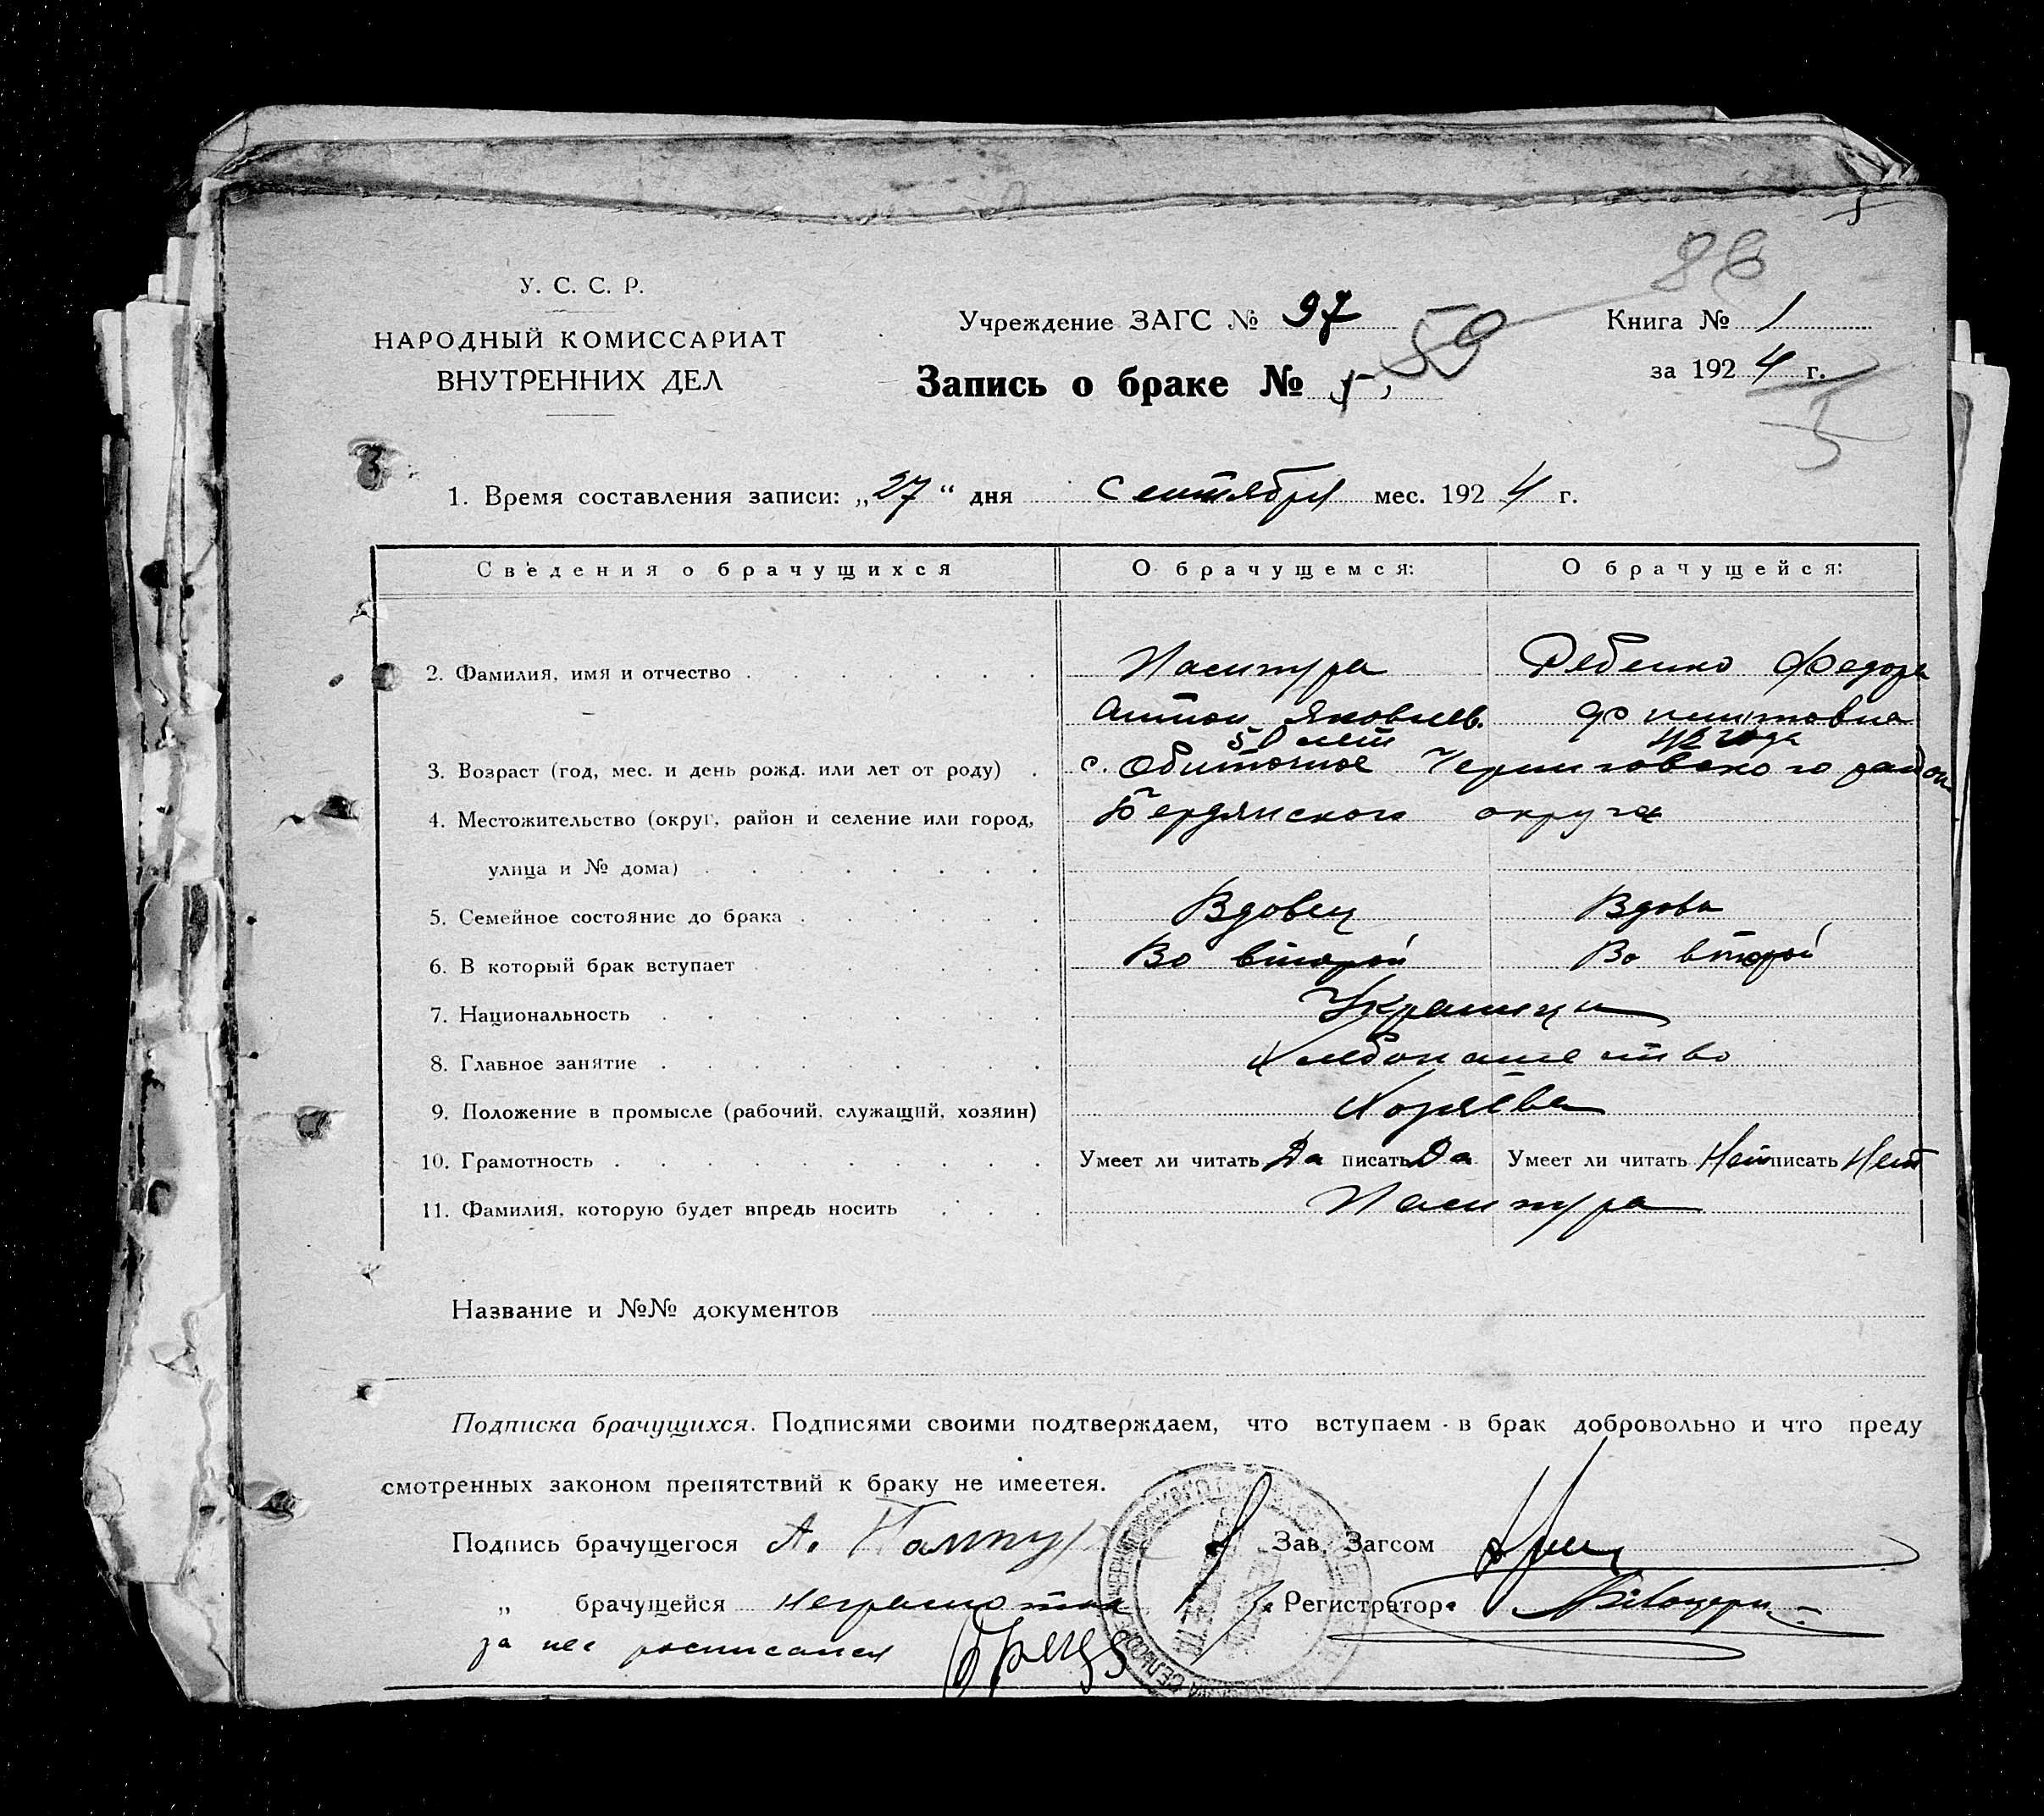 5
86
У. С. С. Р.
НАРОДНЫЙ КОМИССАРИАТ
ВНУТРЕННИХ ДЕЛ
Учреждение ЗАГС № 97
Книга № 1
Запись о браке № 5,
59
за 1924 г.
5
1. Время составления записи: „27“ дня сентября мес. 1924 г.
Сведения о брачущихся О брачущемся: О брачущейся:
2. Фамилия, имя и отчество Федора
Антон Яковлев.
50 лет 42 года
3. Возраст (год, мес. и день рожд. или лет от роду) с. Обиточное Черниговского район
4. Местожительство (округ, район и селение или город, Бердянского округа
улица и № дома)
5. Семейное состояние до брака Вдовец Вдова
6. В который брак вступает Во второй Во второй
7. Национальность Украинцы
8. Главное занятие Хлебопашество
9. Положение в промысле (рабочий, служащий, хозяин) Хозяева
10. Грамотность Умеет ли читать Да писать Да Умеет ли читать Нет писать Нет
11. Фамилия, которую будет впредь носить
Название и №№ документов
Подписка брачущихся. Подписями своими подтверждаем, что вступаем в брак добровольно и что преду
смотренных законом препятствий к браку не имеется.
Подпись брачущегося А. Зав. Загсом
„ брачущейся неграмотна Регистратор
за нее росписался